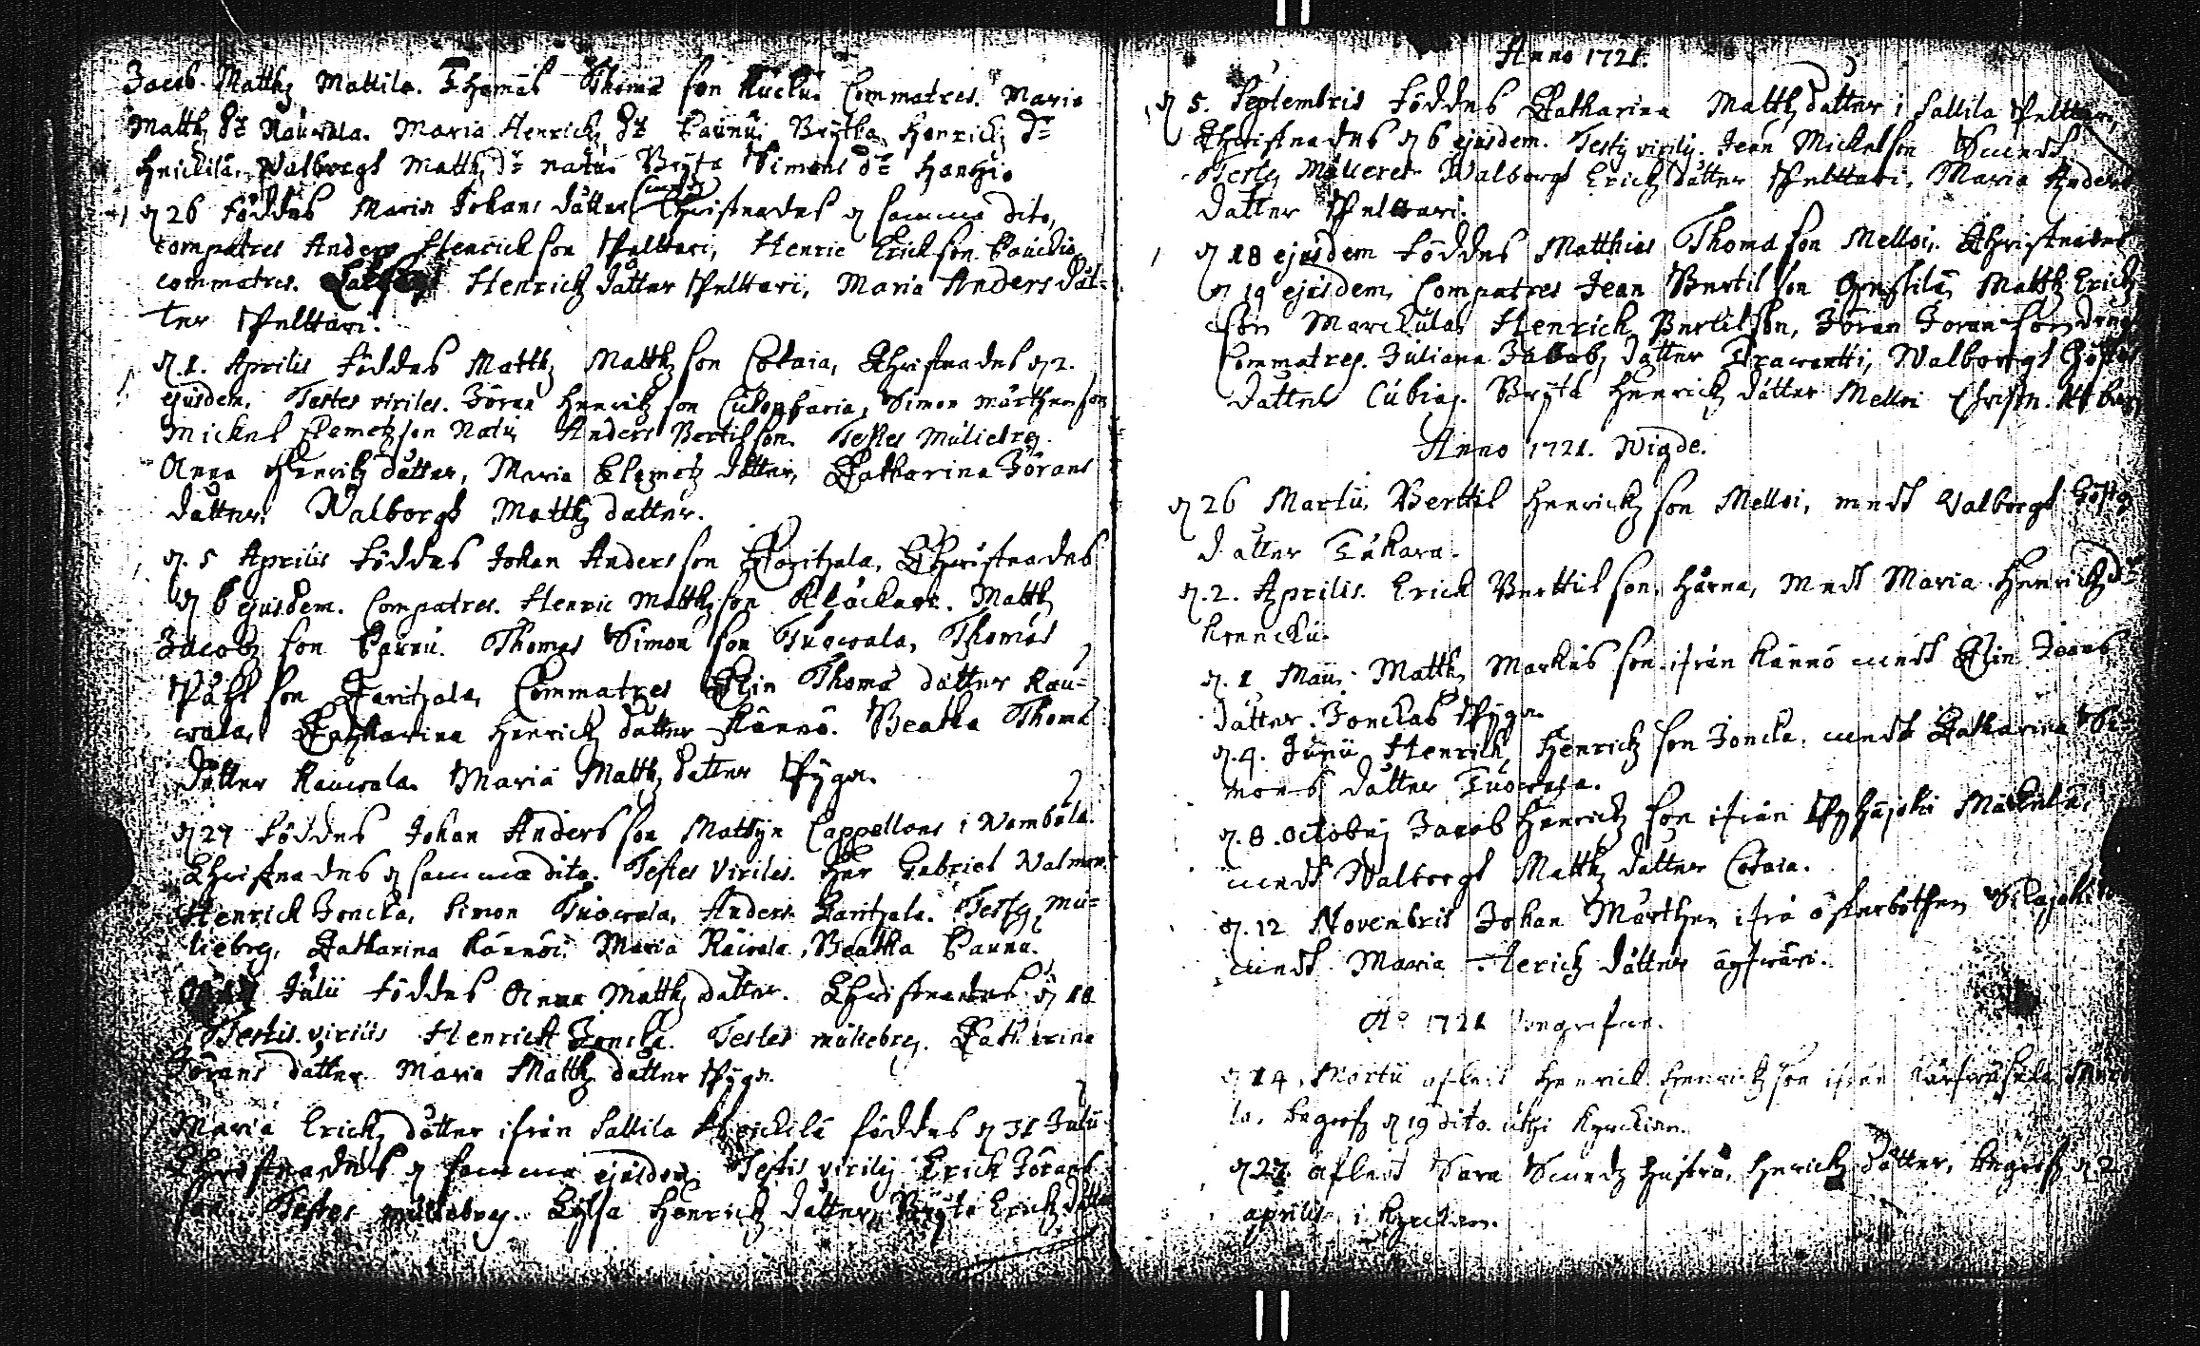 Jacob Matthz Mattila. Thomas Thomæ son Kuckû Commatres. Maria
Matthz dr Rauwala. Maria Henrichz dr Paunû, Brytha Henrichz dr
Heickilä, Walborgh Matthz dr Natû Bryta Simons dr Hanhio
d 26 föddes Maria Johans dåtter Christnades d samma dito,
compatres Anders Henrickson Pelttari, Henric Erickson
commatres. Henrichz dåtter Pelttari, Maria Anders dåt-
ter Pelttari.
d. 1. Aprilis föddes Matthz Matthz son Cotaia, Christnades d 2.
ejusdem. Testes viriles. Jöran Henrichz son Simon Mårthenson
Mickel Clemetz son Natû, Anders Bertilson. Testes Muliebres.
Anna Henrichz dåtter, Maria Clemetz dåtter, Catharina Jörans
dåtter. Walborgh Matthz dåtter.
d. 5 Aprilis föddes Johan Anders son Caritzala, Christnades
d 6 ejusdem. Compatres. Henric Matthz son Klåckare. Matthz
Jacobz son Paunu. Thomas Simon son Tuowala, Thomas
Påhl son Caritzala, Commatres Elin Thomæ dåtter Rau-
wala, Catharina Henrichz dåtter Kännö. Beatha Thomæ
dåtter Rauwala. Maria Matthz dåtter Pyga.
d 27 föddes Johan Anders son Mathyn Cappellans i Wambula.
Christnades d samma dito. Testes Viriles. Her Gabriel Walman
Henrick Joncka, Simon Tuowala, Anders Caritzala. Testes Mu-
liebres, Catharina Kännöi Maria Rauwala, Beatha Paunu.
Julii föddes Anna Matthz dåtter. Christnades d 18
Testis virilis Henrich Joncka. Testes muliebres. Catharina
Jörans dåtter Maria Matthz dåtter Pyga.
Maria Erichz dåtter ifrån Sallila föddes d 31 Julii
Christnades d samma ejusdem Testis virilis Erich Jörans
son Testes muliebres. Lijsa Henrichz dåtter, Bryta Erichz dåtter
Anno 1721.
d 5. Septembris föddes Catharina Matthz dåtter i Sallila Pelttari,
Christnades d 6 ejusdem. Testis virilis. Jean Mickelson Smedh
Testes Mulieres Walborgh Erichz dåtter Pelttari, Maria Anders
dåtter Pelttari.
d 18 ejusdem föddes Matthias Thomæ son Melloi, Christnades
d 19 ejusdem, Compatres Jean Bertil son Matthz Erichz
son Marckula, Henrich Bertilson, Jöran Joranson dreng
Commatres. Juliana Jacobz dåtter Walborgh Göstas
dåtter Bryta Henrichz dåtter Melloi
Anno 1721. Wigde.
d 26 Martii, Berttil Henrichz son Melloi, medh Valborgh Göstas
dåtter Tukara.
d. 2. Aprilis. Erich Berttil son, Härna, medh Maria Henrichz dr
d. 1 Maii. Matthz Markus son ifrån Kännö medh Elin Joans
dåtter. Jonckas Pyga.
d. 4. Junii Henrich Henrichz son Joncka, medh Catharina Si-
mons dåtter Tuowala.
d. 8. Octobris Jacob Henrichz son ifrån Pyhäjoki
medh Walborgh Matthz dåtter Cotaia.
d. 12 Novembris Johan Mårthen ifrå österbothen
medh Maria Herichz dåtter
Ao 1721
d 14. Martii afledh Henrich Henrichz son ifrån
la. begrofz d 19 dito. uthi Kyrckian.
d 27. afledh Sara Smedz hustru, Henrichz dåtter, begrofz d 2
aprilis i Kyrckian.